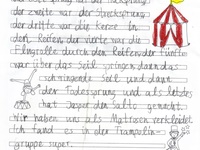 der zweite war der Strecksprung
der dritte war die Kerze in
den Reifen der vierte war die
Flugrolle durch den Reifen der fünfte
war über das Seil springen dann das
schwingende Seil und dann
der Todessprung und als letztes
hat Jesper den Salto gemacht.
Wir haben uns als Matrosen verkleidet.
Ich fand es in der Trampolin-
gruppe super.